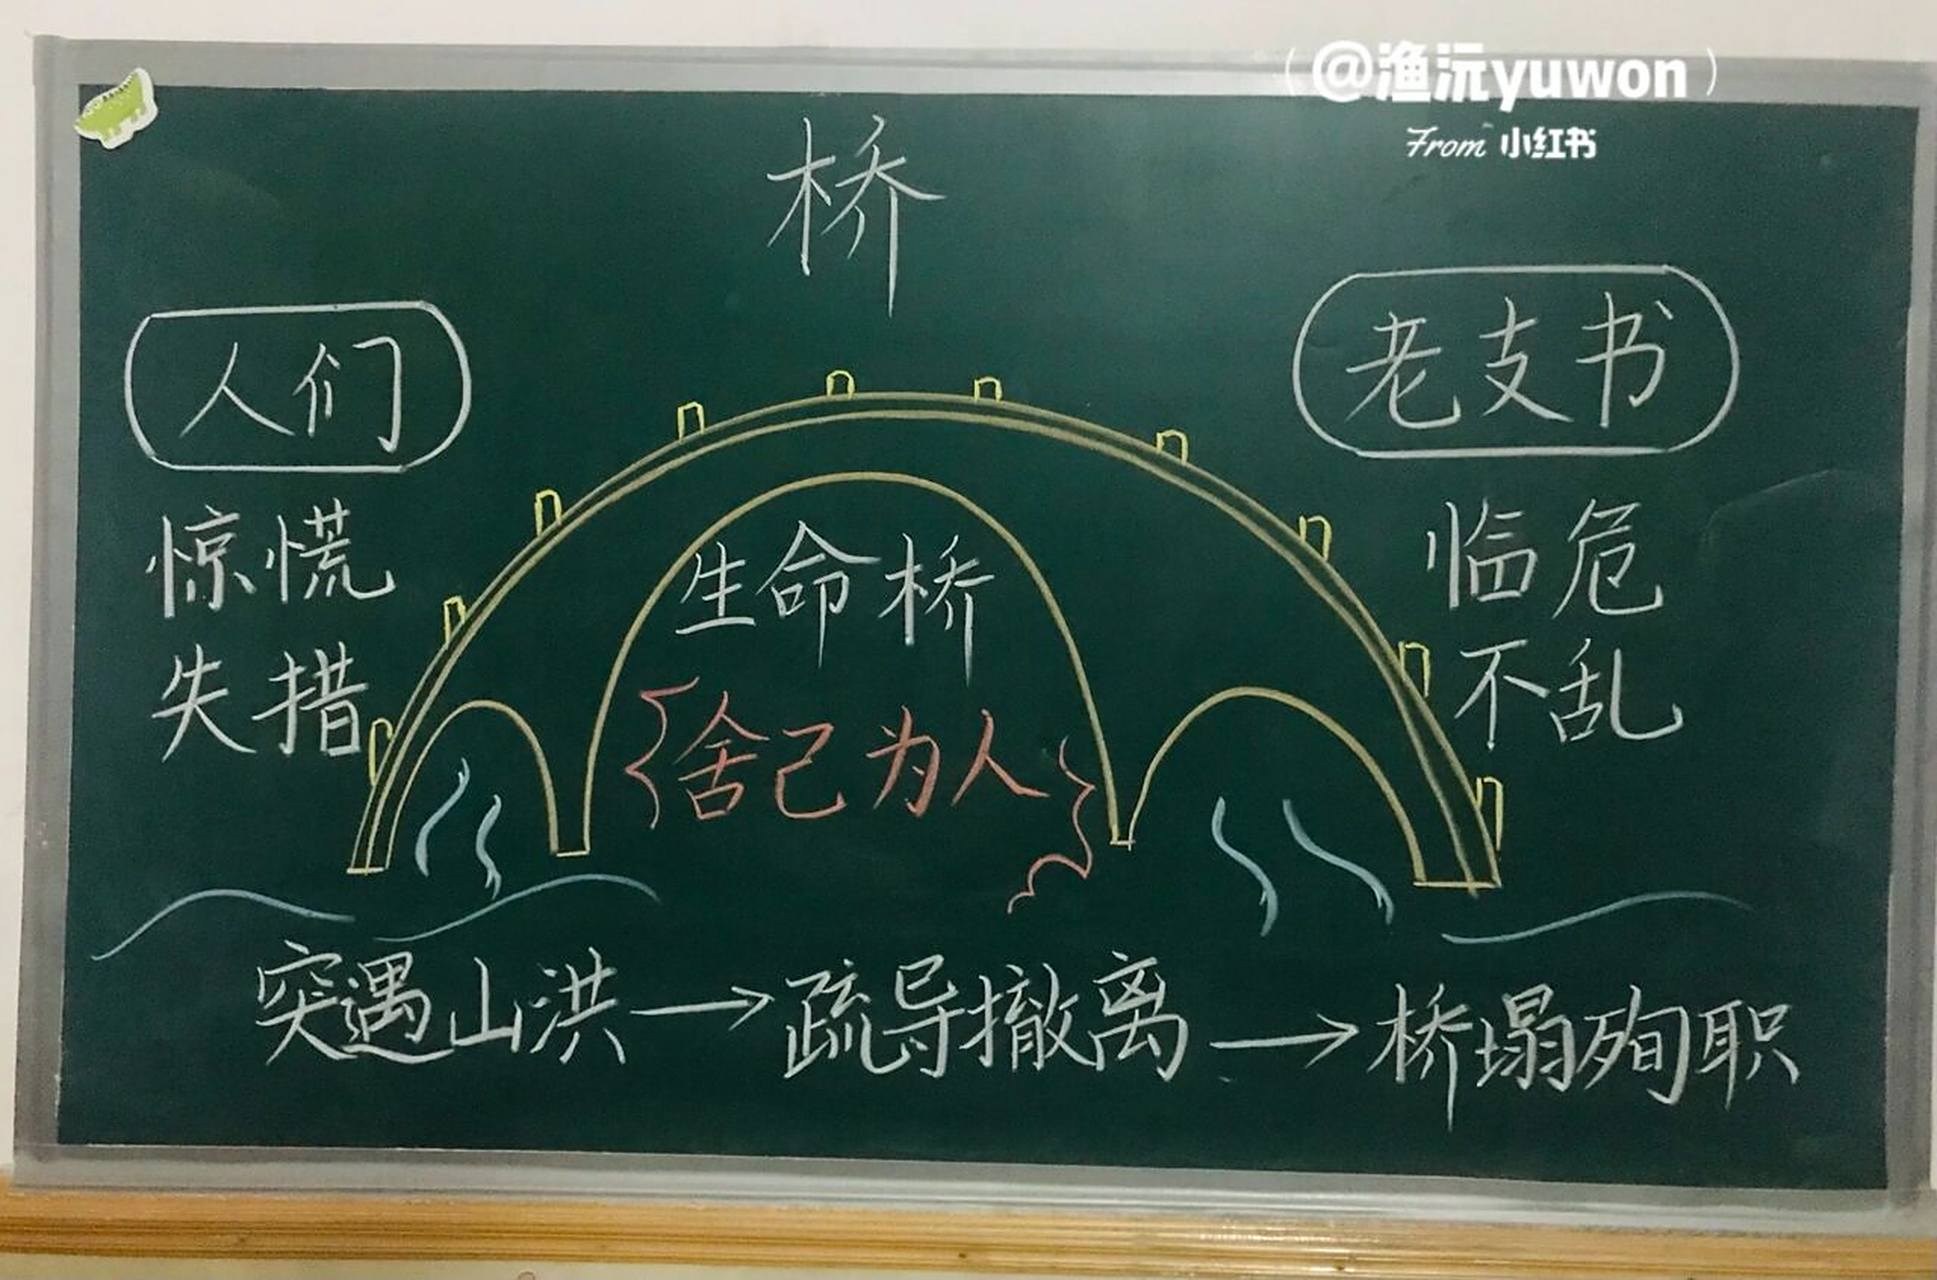 @渔沅yuwon
From 小红书
桥
人们
老支书
惊慌
失措
生命桥
舍己为人
临危
不乱
突遇山洪→疏导撤离→桥塌殉职